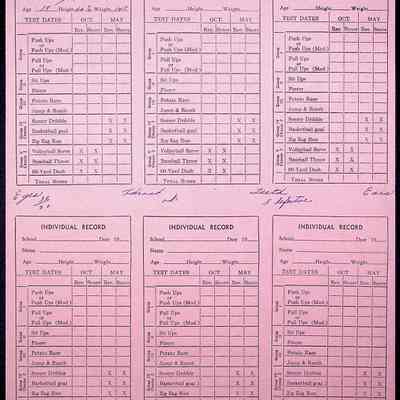 Age 14 Height Weight
Age Height Weight
Age Height Weight
TEST DATES OCT MAY
TEST DATES OCT MAY
TEST DATES OCT MAY
Rec. Score Rec. Score
Rec. Score Rec. Score
Rec. Score Rec. Score
Push Ups
or
Push Ups (Mod.)
Pull Ups
or
Pull Ups (Mod.)
Sit Ups
Potato Race
Jump & Reach
Soccer Dribble X X
Basketball goal X X
Zig Zag Run X X
Volleyball Serve X X
Baseball Throw X X
60-Yard Dash X X
TOTAL SCORE
Push Ups
or
Push Ups (Mod.)
Pull Ups
or
Pull Ups (Mod.)
Sit Ups
Potato Race
Jump & Reach
Soccer Dribble X X
Basketball goal X X
Zig Zag Run X X
Volleyball Serve X X
Baseball Throw X X
60-Yard Dash X X
TOTAL SCORE
Push Ups
or
Push Ups (Mod.)
Pull Ups
or
Pull Ups (Mod.)
Sit Ups
Potato Race
Jump & Reach
Soccer Dribble X X
Basketball goal X X
Zig Zag Run X X
Volleyball Serve X X
Baseball Throw X X
60-Yard Dash X X
TOTAL SCORE
Eyes Teeth Ears
INDIVIDUAL RECORD
School Date 19
Name
Age Height Weight
TEST DATES OCT MAY
Rec. Score Rec. Score
Push Ups
or
Push Ups (Mod.)
Pull Ups
or
Pull Ups (Mod.)
Sit Ups
Potato Race
Jump & Reach
Soccer Dribble X X
Basketball goal X X
Zig Zag Run X X
INDIVIDUAL RECORD
School Date 19
Name
Age Height Weight
TEST DATES OCT MAY
Rec. Score Rec. Score
Push Ups
or
Push Ups (Mod.)
Pull Ups
or
Pull Ups (Mod.)
Sit Ups
Potato Race
Jump & Reach
Soccer Dribble X X
Basketball goal X X
Zig Zag Run X X
INDIVIDUAL RECORD
School Date 19
Name
Age Height Weight
TEST DATES OCT MAY
Rec. Score Rec. Score
Push Ups
or
Push Ups (Mod.)
Pull Ups
or
Pull Ups (Mod.)
Sit Ups
Potato Race
Jump & Reach
Soccer Dribble X X
Basketball goal X X
Zig Zag Run X X